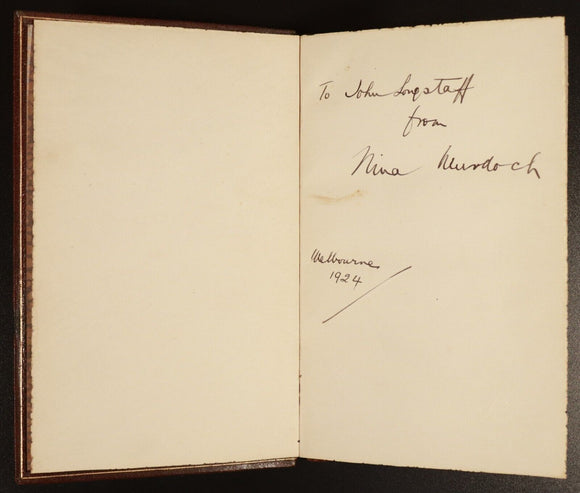 To John Longstaff
from
Nina Murdoch
Melbourne
1924